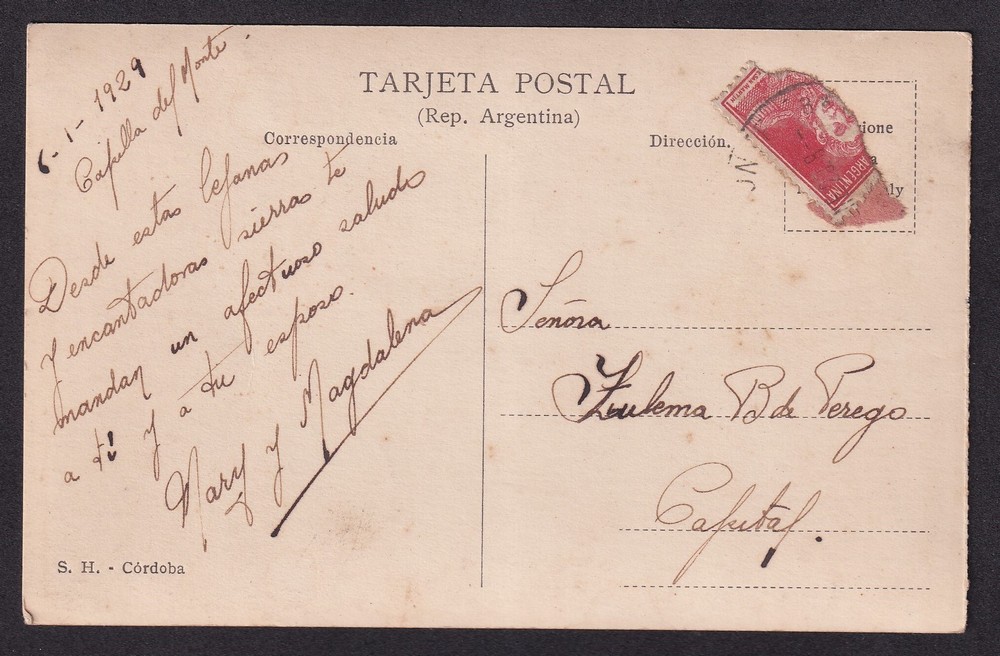 TARJETA POSTAL
(Rep. Argentina)
Correspondencia
Dirección
6-1-1929
Capilla del Monte.
Desde estas lejanas
y encantadoras sierras te
mandan un afectuoso saludo
a ti y a tu esposo.
Mary y Magdalena
S. H. - Córdoba
ARGENTINA
Señora
Zulema B de Perego
Capital.